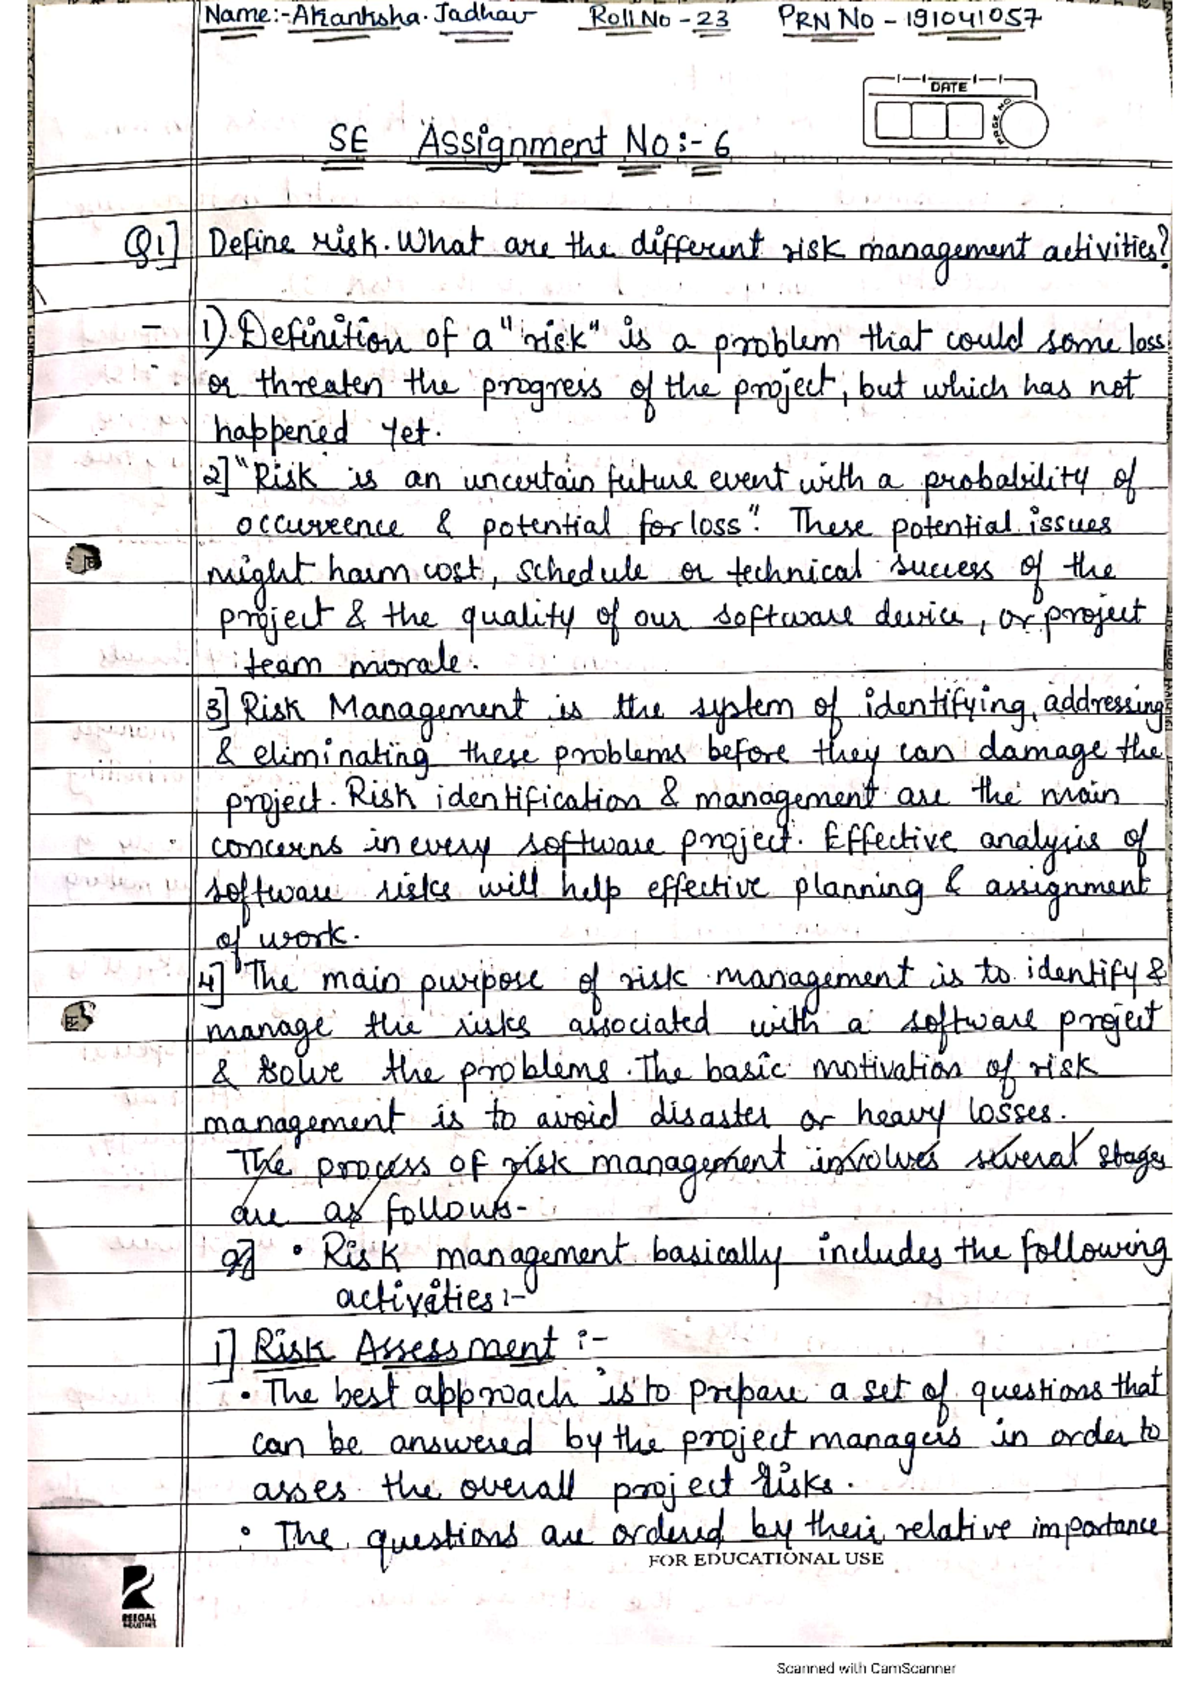 Name:- Akanksha. Jadhav Roll No - 23 PRN No - 191041057
DATE
PAGE NO
SE Assignment No:- 6
Q1] Define risk. What are the different risk management activities?
- 1) Definition of a "risk" is a problem that could some loss
or threaten the progress of the project, but which has not
happened yet.
2] "Risk is an uncertain future event with a probability of
occureence & potential for loss". These potential issues
might harm cost, schedule or technical success of the
project & the quality of our software device, or project
team morale.
3] Risk Management is the system of identifying, addressing
& eliminating these problems before they can damage the
project. Risk identification & management are the main
concerns in every software project. Effective analysis of
software risks will help effective planning & assignment
of work.
4] The main purpose of risk management is to identify &
manage the risks associated with a software project
& solve the problems. The basic motivation of risk
management is to avoid disaster or heavy losses.
The process of risk management involves several stages
are as follows-
• Risk management basically includes the following
activities :-
1] Risk Assessment :-
• The best approach is to prepare a set of questions that
can be answered by the project managers in order to
asses the overall project risks.
• The questions are ordered by their relative importance
FOR EDUCATIONAL USE
REEGAL
INDUSTRIES
Scanned with CamScanner